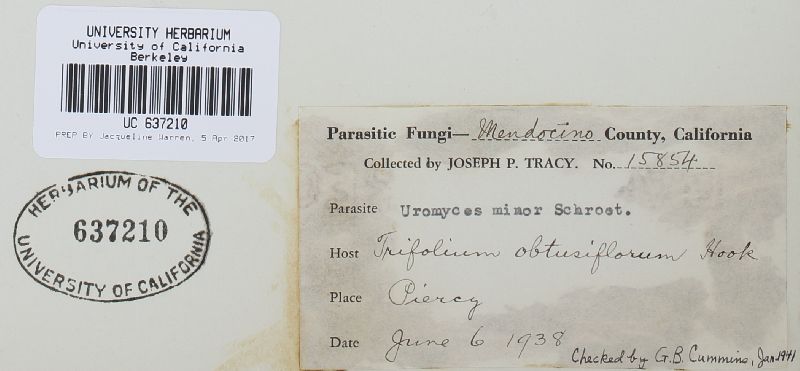 UNIVERSITY HERBARIUM
University of California
Berkeley
UC 637210
PREP BY Jacqueline Warren, 5 Apr 2017
HERBARIUM OF THE
637210
UNIVERSITY OF CALIFORNIA
Parasitic Fungi— Mendocino County, California
Collected by JOSEPH P. TRACY. No. 15854
Parasite Uromyces minor Schroet.
Host Trifolium obtusiflorum Hook
Place Piercy
Date June 6 1938
Checked by G.B. Cummins, Jan 1941